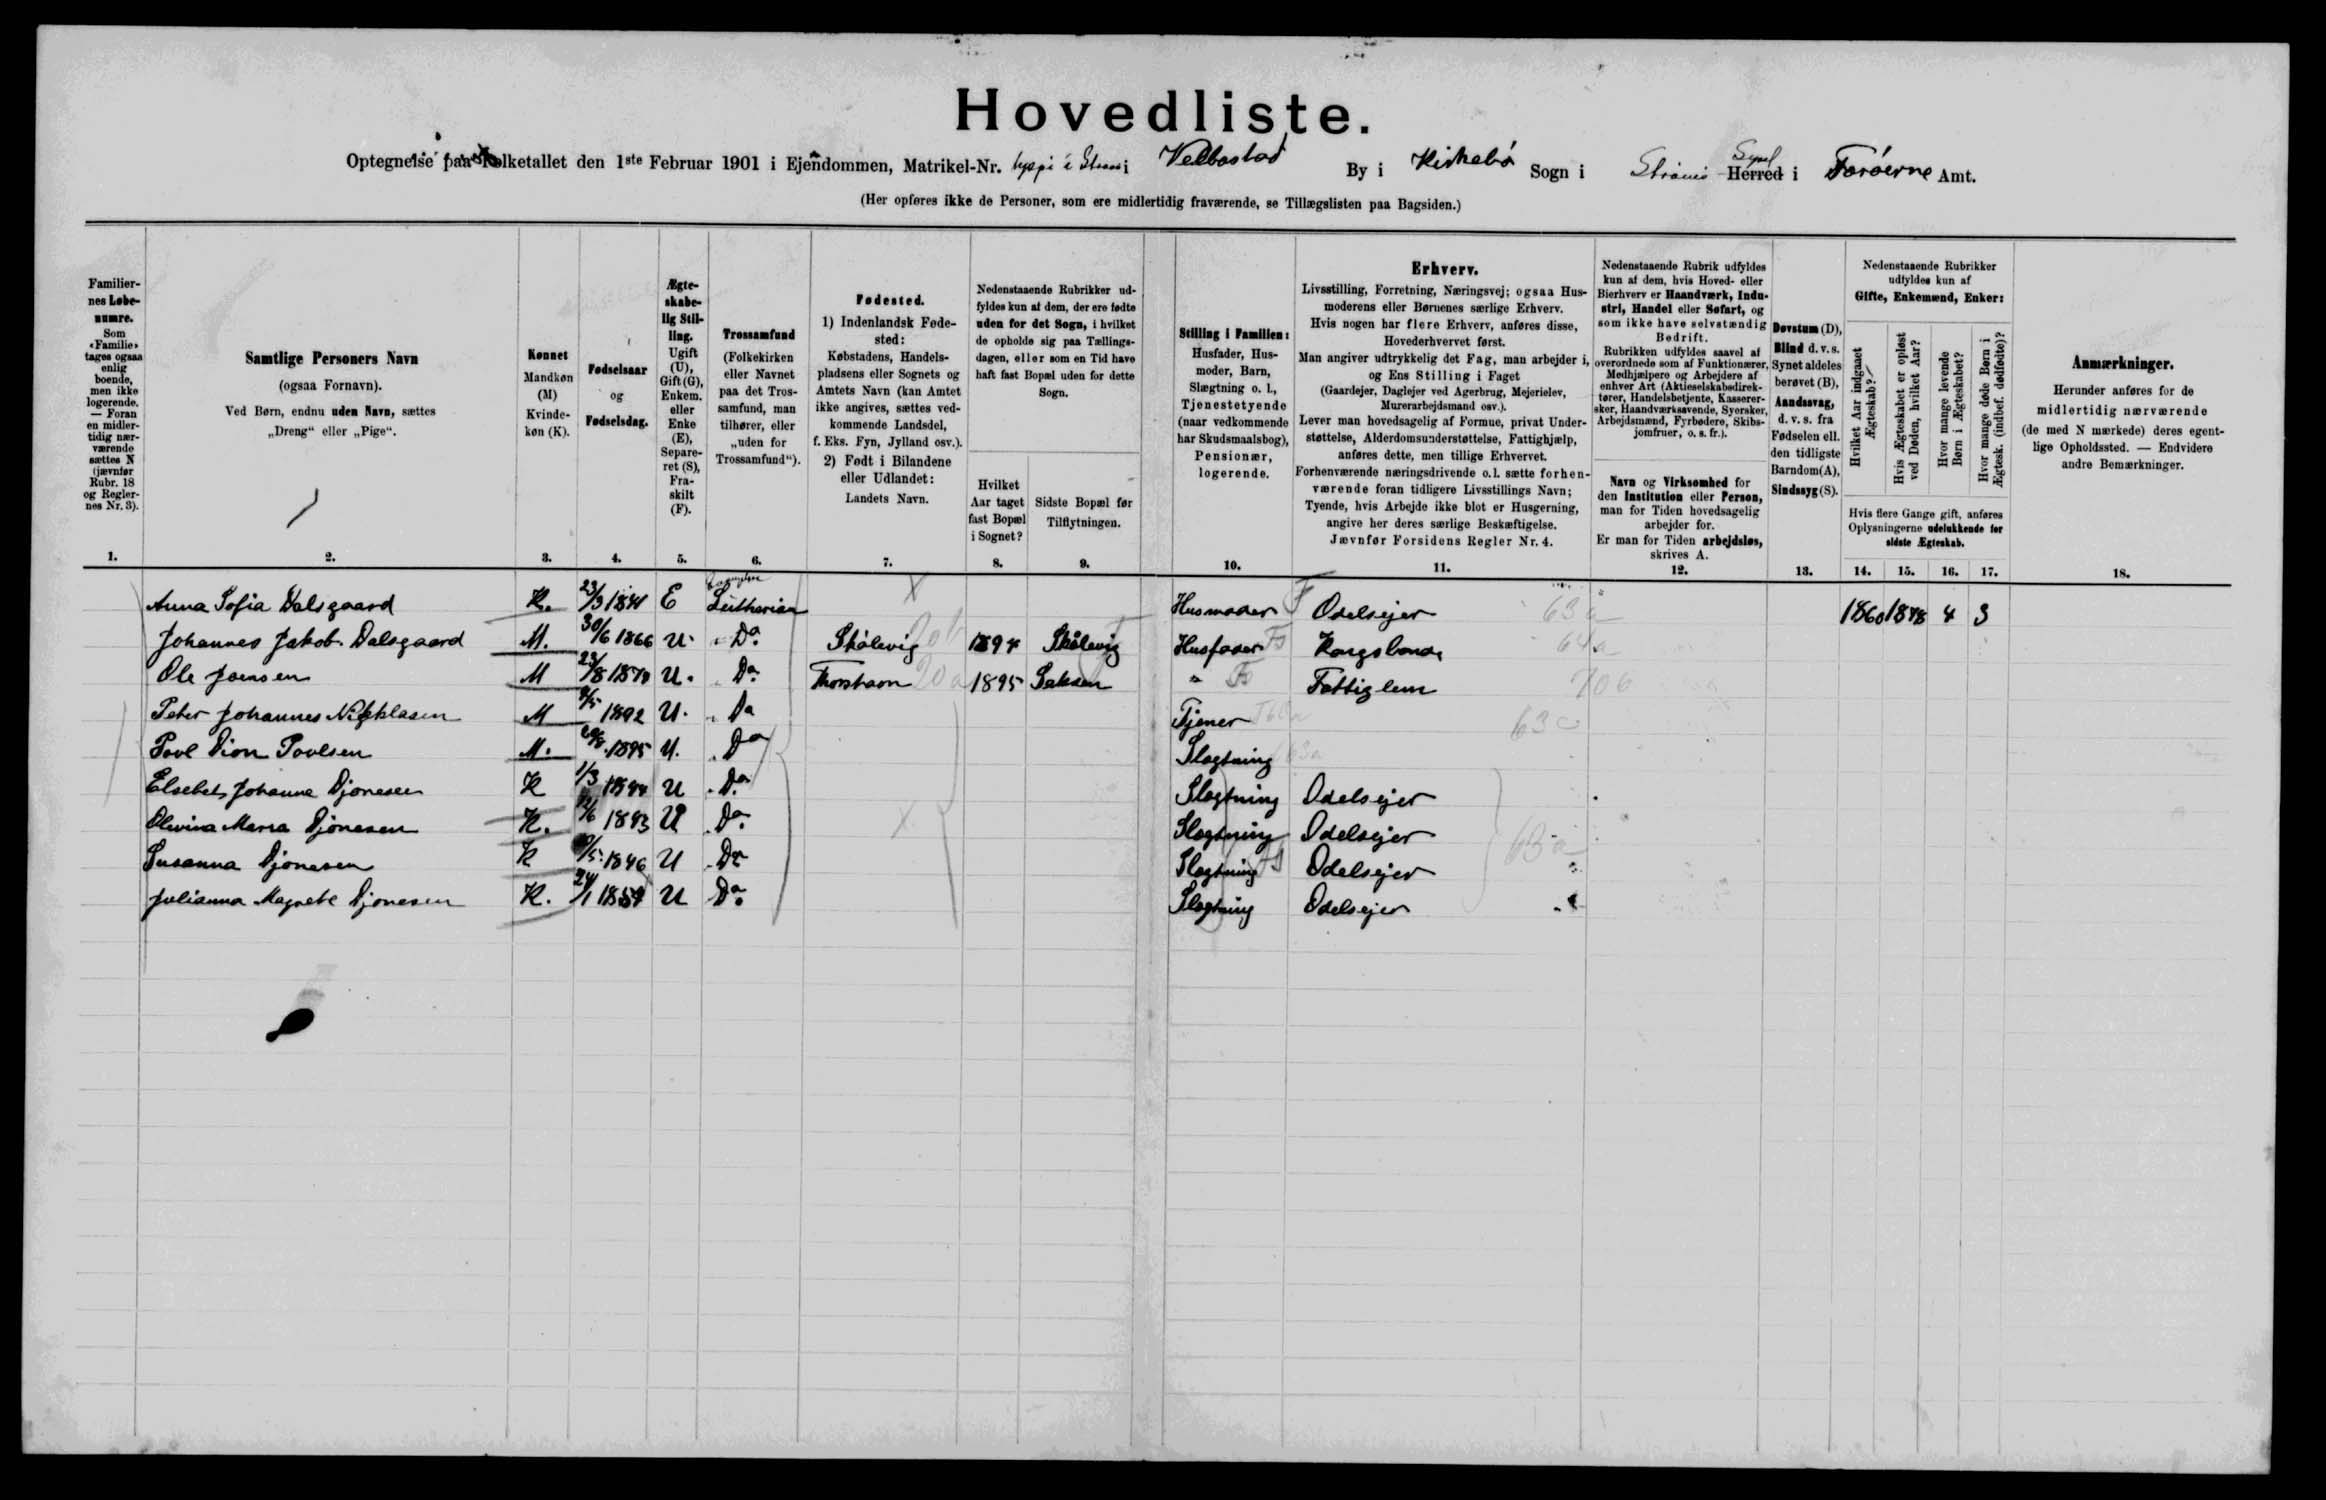 Hovedliste.
Optegnelse paa Folketallet den 1ste Februar 1901 i Ejendommen, Matrikel-Nr. i Velbastad By i Kirkebø Sogn i Strømø Herred Syssel i Færöerne Amt.
(Her opføres ikke de Personer, som ere midlertidig fraværende, se Tillægslisten paa Bagsiden.)
Familiernes Løbenumre.
Som «Familie» tages ogsaa enlig boende, men ikke logerende. — Foran en midlertidig nærværende sættes N (jævnfør Rubr. 18 og Reglernes Nr. 3).
1.
Samtlige Personers Navn
(ogsaa Fornavn).
Ved Børn, endnu uden Navn, sættes
„Dreng" eller „Pige".
2.
Kønnet
Mandkøn (M)
Kvindekøn (K).
3.
Fødselsaar
og
Fødselsdag.
4.
Ægteskabelig Stilling.
Ugift (U), Gift (G), Enkem. eller Enke (E), Separeret (S), Fraskilt (F).
5.
Trossamfund
(Folkekirken eller Navnet paa det Trossamfund, man tilhører, eller „uden for Trossamfund").
6.
Fødested.
1) Indenlandsk Fødested:
Købstadens, Handelspladsens eller Sognets og Amtets Navn (kan Amtet ikke angives, sættes vedkommende Landsdel, f. Eks. Fyn, Jylland osv.).
2) Født i Bilandene eller Udlandet:
Landets Navn.
7.
Nedenstaaende Rubrikker udfyldes kun af dem, der ere fødte uden for det Sogn, i hvilket de opholde sig paa Tællingsdagen, eller som en Tid have haft fast Bopæl uden for dette Sogn.
Hvilket Aar taget fast Bopæl i Sognet?
8.
Sidste Bopæl før Tilflytningen.
9.
Stilling i Familien:
Husfader, Husmoder, Barn, Slægtning o. l., Tjenestetyende (naar vedkommende har Skudsmaalsbog), Pensionær, logerende.
10.
Erhverv.
Livsstilling, Forretning, Næringsvej; ogsaa Husmoderens eller Børnenes særlige Erhverv.
Hvis nogen har flere Erhverv, anføres disse, Hovederhvervet først.
Man angiver udtrykkelig det Fag, man arbejder i, og Ens Stilling i Faget
(Gaardejer, Daglejer ved Agerbrug, Mejerielev, Murerarbejdsmand osv.).
Lever man hovedsagelig af Formue, privat Understøttelse, Alderdomsunderstøttelse, Fattighjælp, anføres dette, men tillige Erhvervet.
Forhenværende næringsdrivende o.l. sætte forhenværende foran tidligere Livsstillings Navn;
Tyende, hvis Arbejde ikke blot er Husgerning, angive her deres særlige Beskæftigelse.
Jævnfør Forsidens Regler Nr. 4.
11.
Nedenstaaende Rubrik udfyldes kun af dem, hvis Hoved- eller Bierhverv er Haandværk, Industri, Handel eller Søfart, og som ikke have selvstændig Bedrift.
Rubrikken udfyldes saavel af overordnede som af Funktionærer, Medhjælpere og Arbejdere af enhver Art (Aktieselskabsdirektører, Handelsbetjente, Kasserersker, Haandværkssvende, Syersker, Arbejdsmænd, Fyrbødere, Skibsjomfruer, o. s. fr.).
Navn og Virksomhed for den Institution eller Person, man for Tiden hovedsagelig arbejder for.
Er man for Tiden arbejdsløs, skrives A.
12.
Døvstum (D), Blind d. v. s. Synet aldeles berøvet (B), Aandssvag, d. v. s. fra Fødselen ell. den tidligste Barndom (A), Sindssyg (S).
13.
Nedenstaaende Rubrikker udfyldes kun af
Gifte, Enkemænd, Enker:
Hvilket Aar indgaaet Ægteskab?
Hvis Ægteskabet er opløst ved Døden, hvilket Aar?
Hvor mange levende Børn i Ægteskabet?
Hvor mange døde Børn i Ægtesk. (indbef. dødfødte)?
Hvis flere Gange gift, anføres Oplysningerne udelukkende for sidste Ægteskab.
14. 15. 16. 17.
Anmærkninger.
Herunder anføres for de midlertidig nærværende (de med N mærkede) deres egentlige Opholdssted. — Endvidere andre Bemærkninger.
18.
Anna Sofia Dalsgaard K. 23/3 1841 E Lutherian Husmoder F Odelsejer 63a 1860 1878 4 3
Johannes Jakob Dalsgaard M. 30/6 1866 U. Do. Skålevig 1894 Skålevig Husfader Kongsbonde 64a
Ole Joensen M 23/8 1870 U. Do. Thorshavn 20a 1895 Saksen " Fattiglem 70b
Peter Johannes Nikklasen M 1892 U. Do Tjener 63c
Povl Dion Povlsen M. 1895 U. Do Slægtning 63a
Elsebet Johanna Djonesen K 1/3 U Do. Slægtning Odelsejer
Olevina Maria Djonesen K. 1843 U Do. Slægtning Odelsejer 63a
Susanna Djonesen K 1846 U Do Slægtning Odelsejer "
Julianna Magrete Djonesen K. 24/1 U Do. Slægtning Odelsejer "